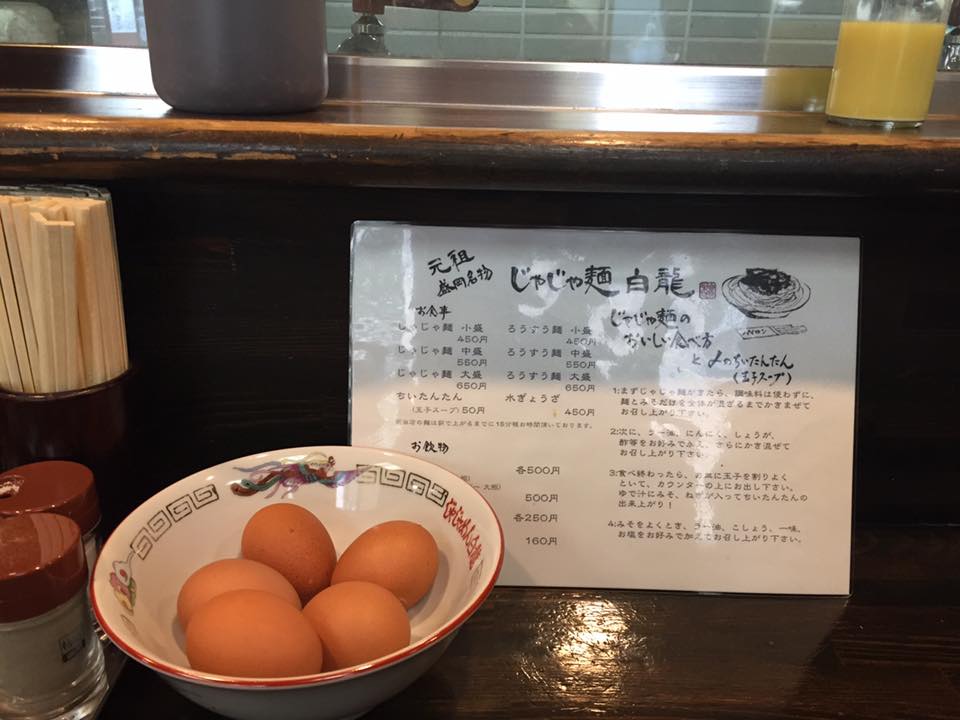 元祖
盛岡名物
じゃじゃ麺 白龍
お食事
じゃじゃ麺 小盛
450円
じゃじゃ麺 中盛
550円
じゃじゃ麺 大盛
650円
ちいたんたん
(玉子スープ) 50円
ろうすう麺 小盛
450円
ろうすう麺 中盛
550円
ろうすう麺 大盛
650円
水ぎょうざ
450円
お時間頂いております。
お飲物
各500円
500円
各250円
160円
じゃじゃ麺の
おいしい食べ方
と〆のちいたんたん
(玉子スープ)
1:まずじゃじゃ麺がきたら、調味料は使わずに、
麺とみそだけを全体が混ざるまでかきまぜて
お召し上がり下さい。
2:次に、ラー油、にんにく、しょうが、
酢等をお好みで加え、さらにかき混ぜて
お召し上がり下さい。
3:食べ終わったら、お皿に玉子を割りよく
といて、カウンターの上にお出し下さい。
ゆで汁にみそ、ねぎが入ってちいたんたんの
出来上がり!
4:みそをよくとき、ラー油、こしょう、一味、
お塩をお好みで加えてお召し上がり下さい。
じゃじゃめん白龍